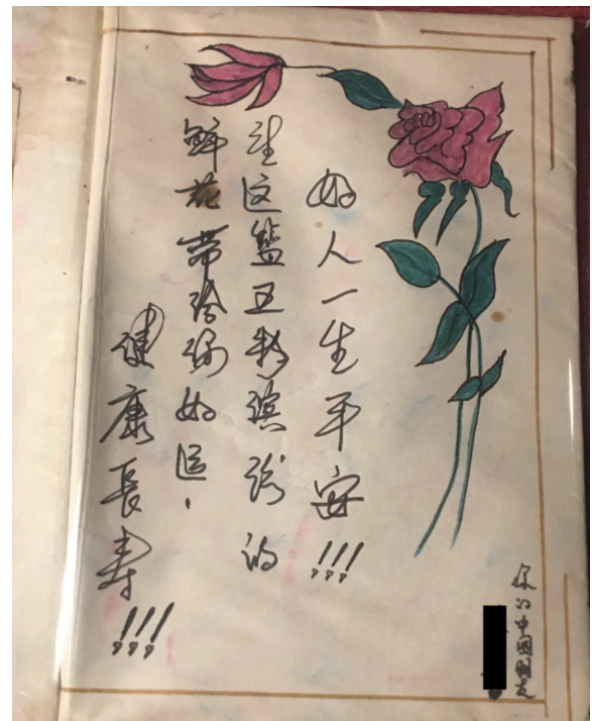 好人一生平安!!!
让这篮五彩缤纷的
鲜花带给你好运,
健康長寿!!!
你的中国朋友